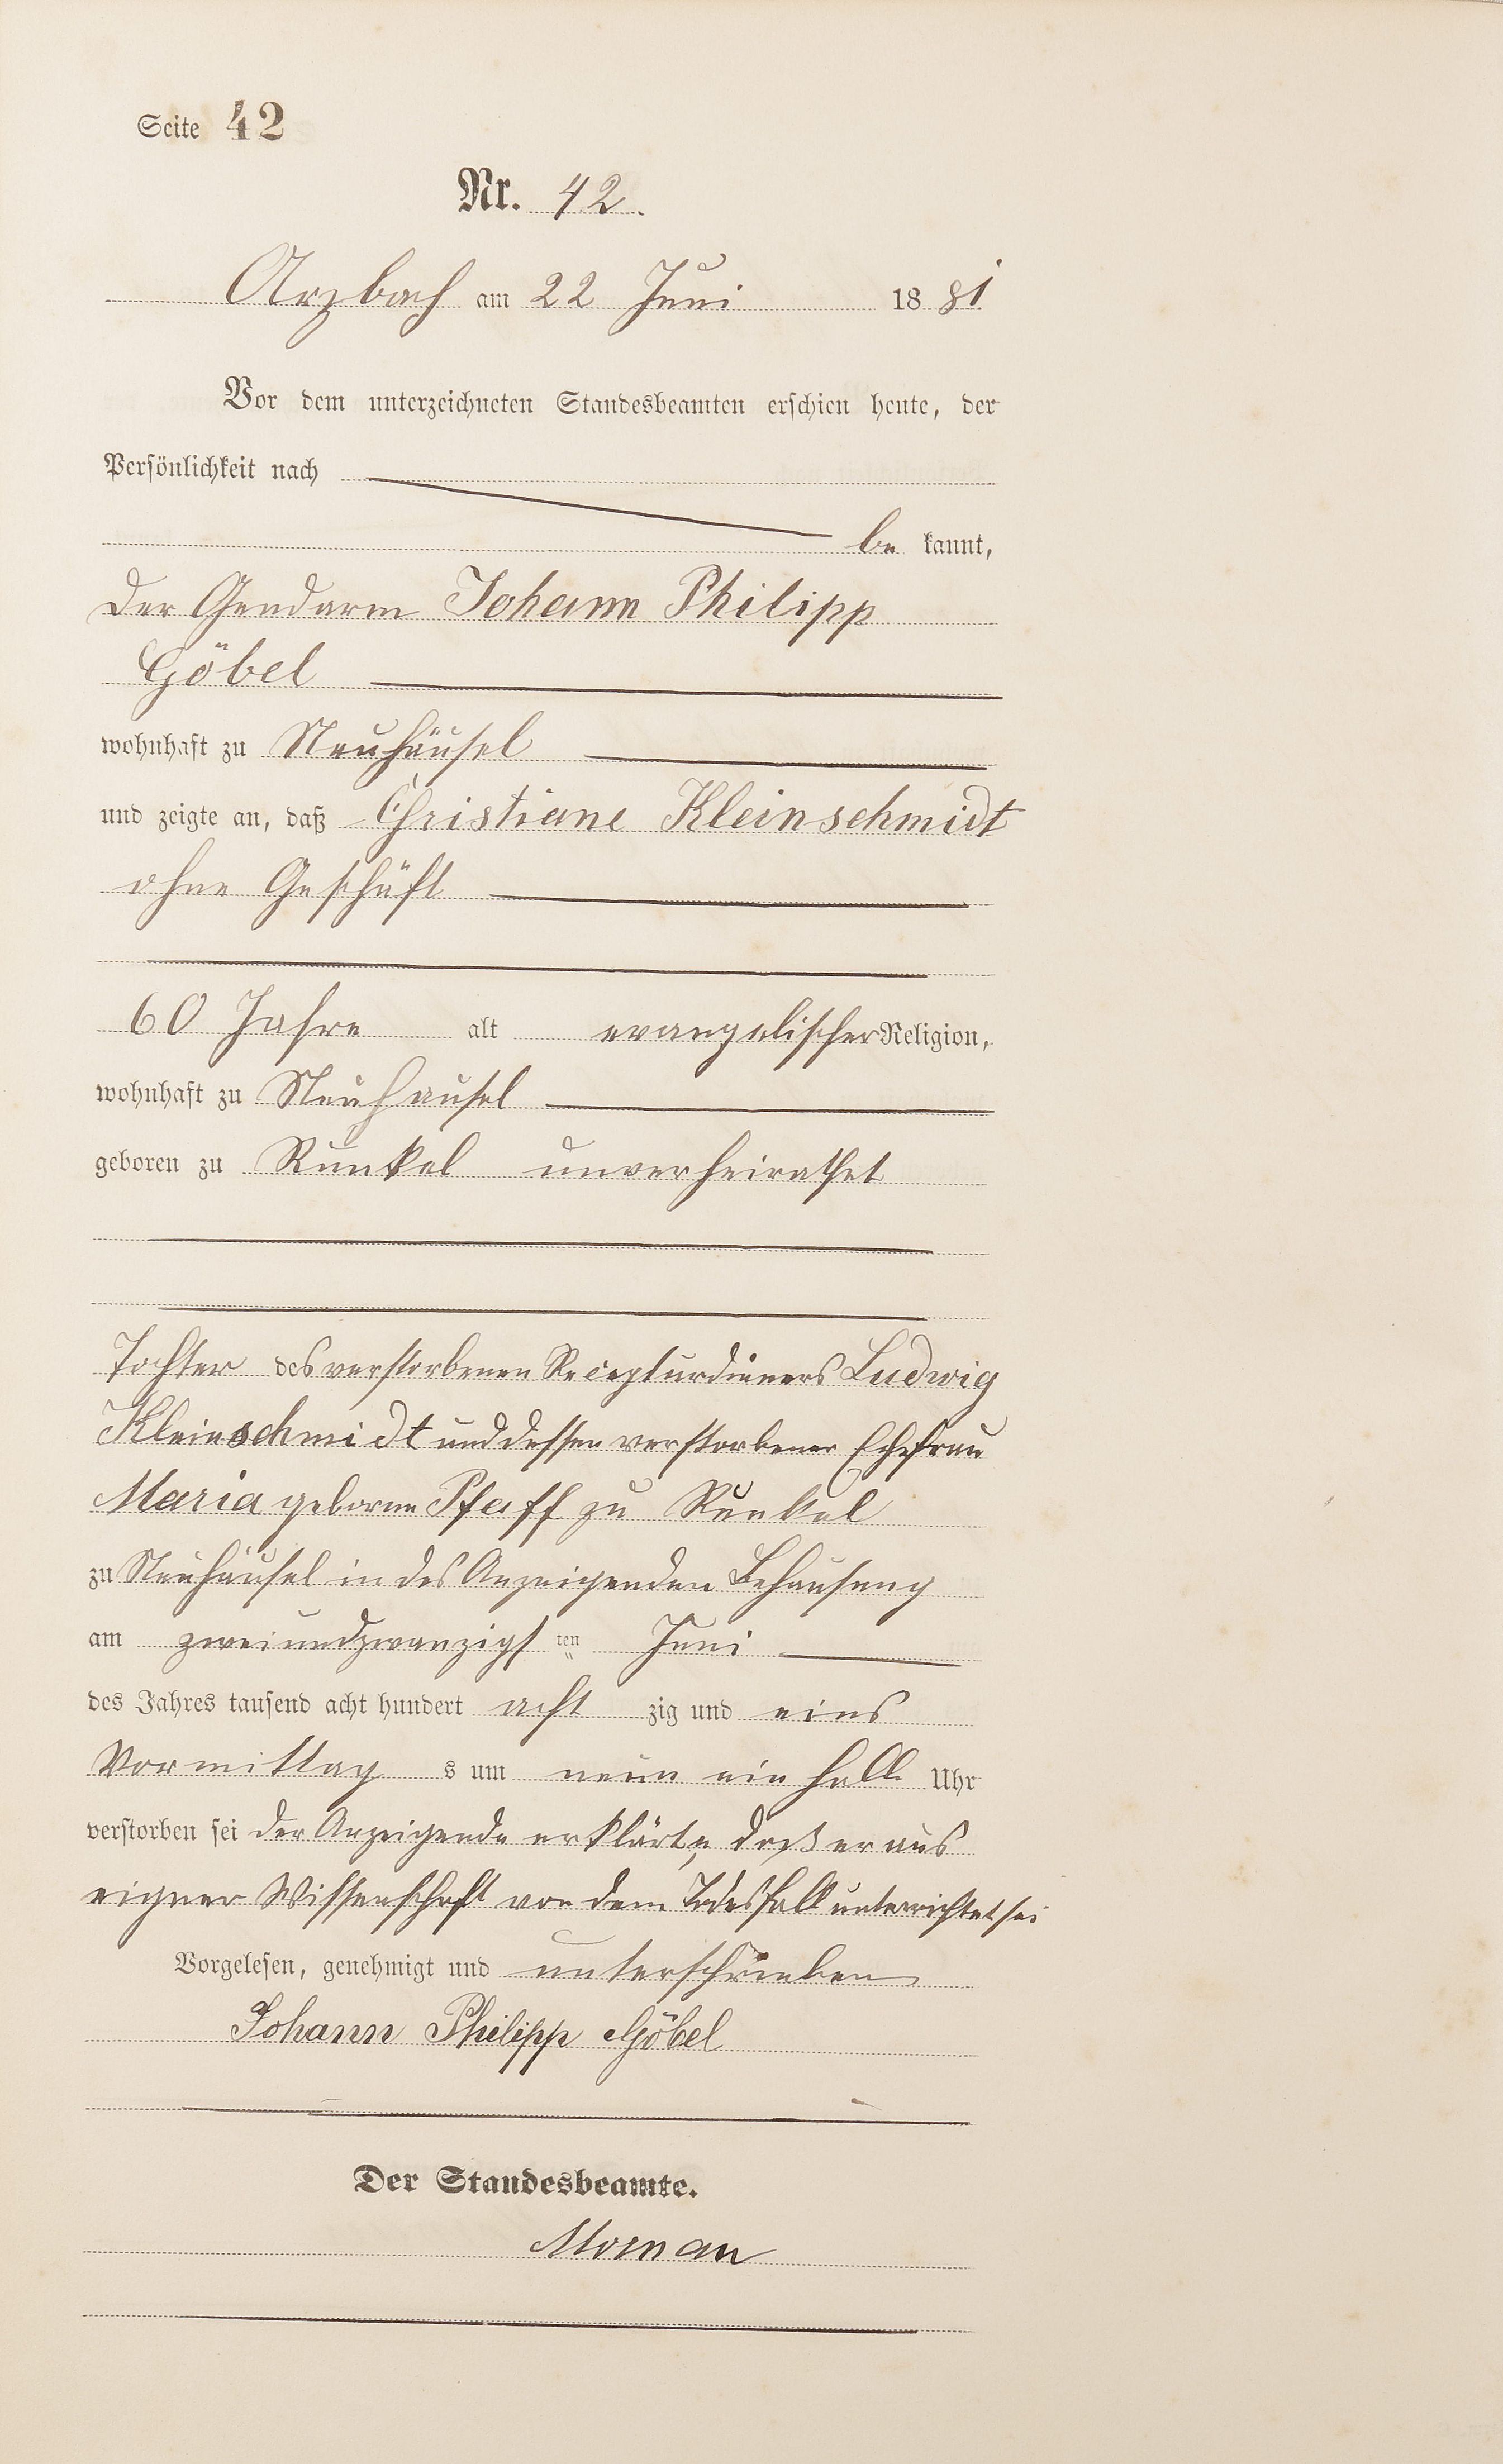 Seite 42
Nr. 42.
Arzbach am 22 Juni 1881.
Vor dem unterzeichneten Standesbeamten erschien heute, der
Persönlichkeit nach
be kannt,
der Gendarm Johann Philipp
Göbel
wohnhaft zu Neuhäusel
und zeigte an, daß Christiane Kleinschmidt
ohne Geschäft
60 Jahre alt evangelischer Religion,
wohnhaft zu Neuhäusel
geboren zu Runkel unverheirathet
Tochter des verstorbenen Recepturdieners Ludwig
Kleinschmidt und dessen verstorbener Ehefrau
Maria geborne Pfaff zu Runkel
zu Neuhäusel in des Anzeigenden Behausung
am zweiundzwanzigsten Juni
des Jahres tausend acht hundert acht zig und eins
Vormittag s um neun ein halb Uhr
verstorben sei der Anzeigende erklärte, daß er aus
eigner Wissenschaft von dem Todesfall unterrichtet sei
Vorgelesen, genehmigt und unterschrieben
Johann Philipp Göbel
Der Standesbeamte.